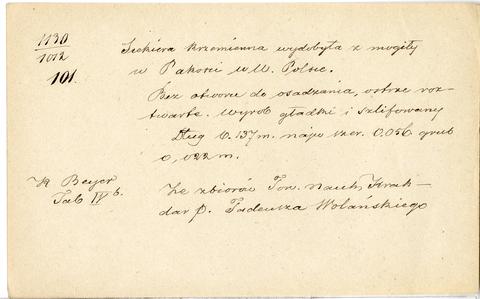 1130
1012
101.
Siekiera krzemienna wydobyta z mogiły
w Pakości w W. Polsce.
Bez otworu do osadzania, ostrze roz-
twarte. Wyrób gładki i szlifowany
Dług 0.137 m. najw szer. 0.056 grub
0,022 m.
Beyer
Tab IV b.
Ze zbiorów Tow. nauk Krak-
dar p. Tadeusza Wolańskiego